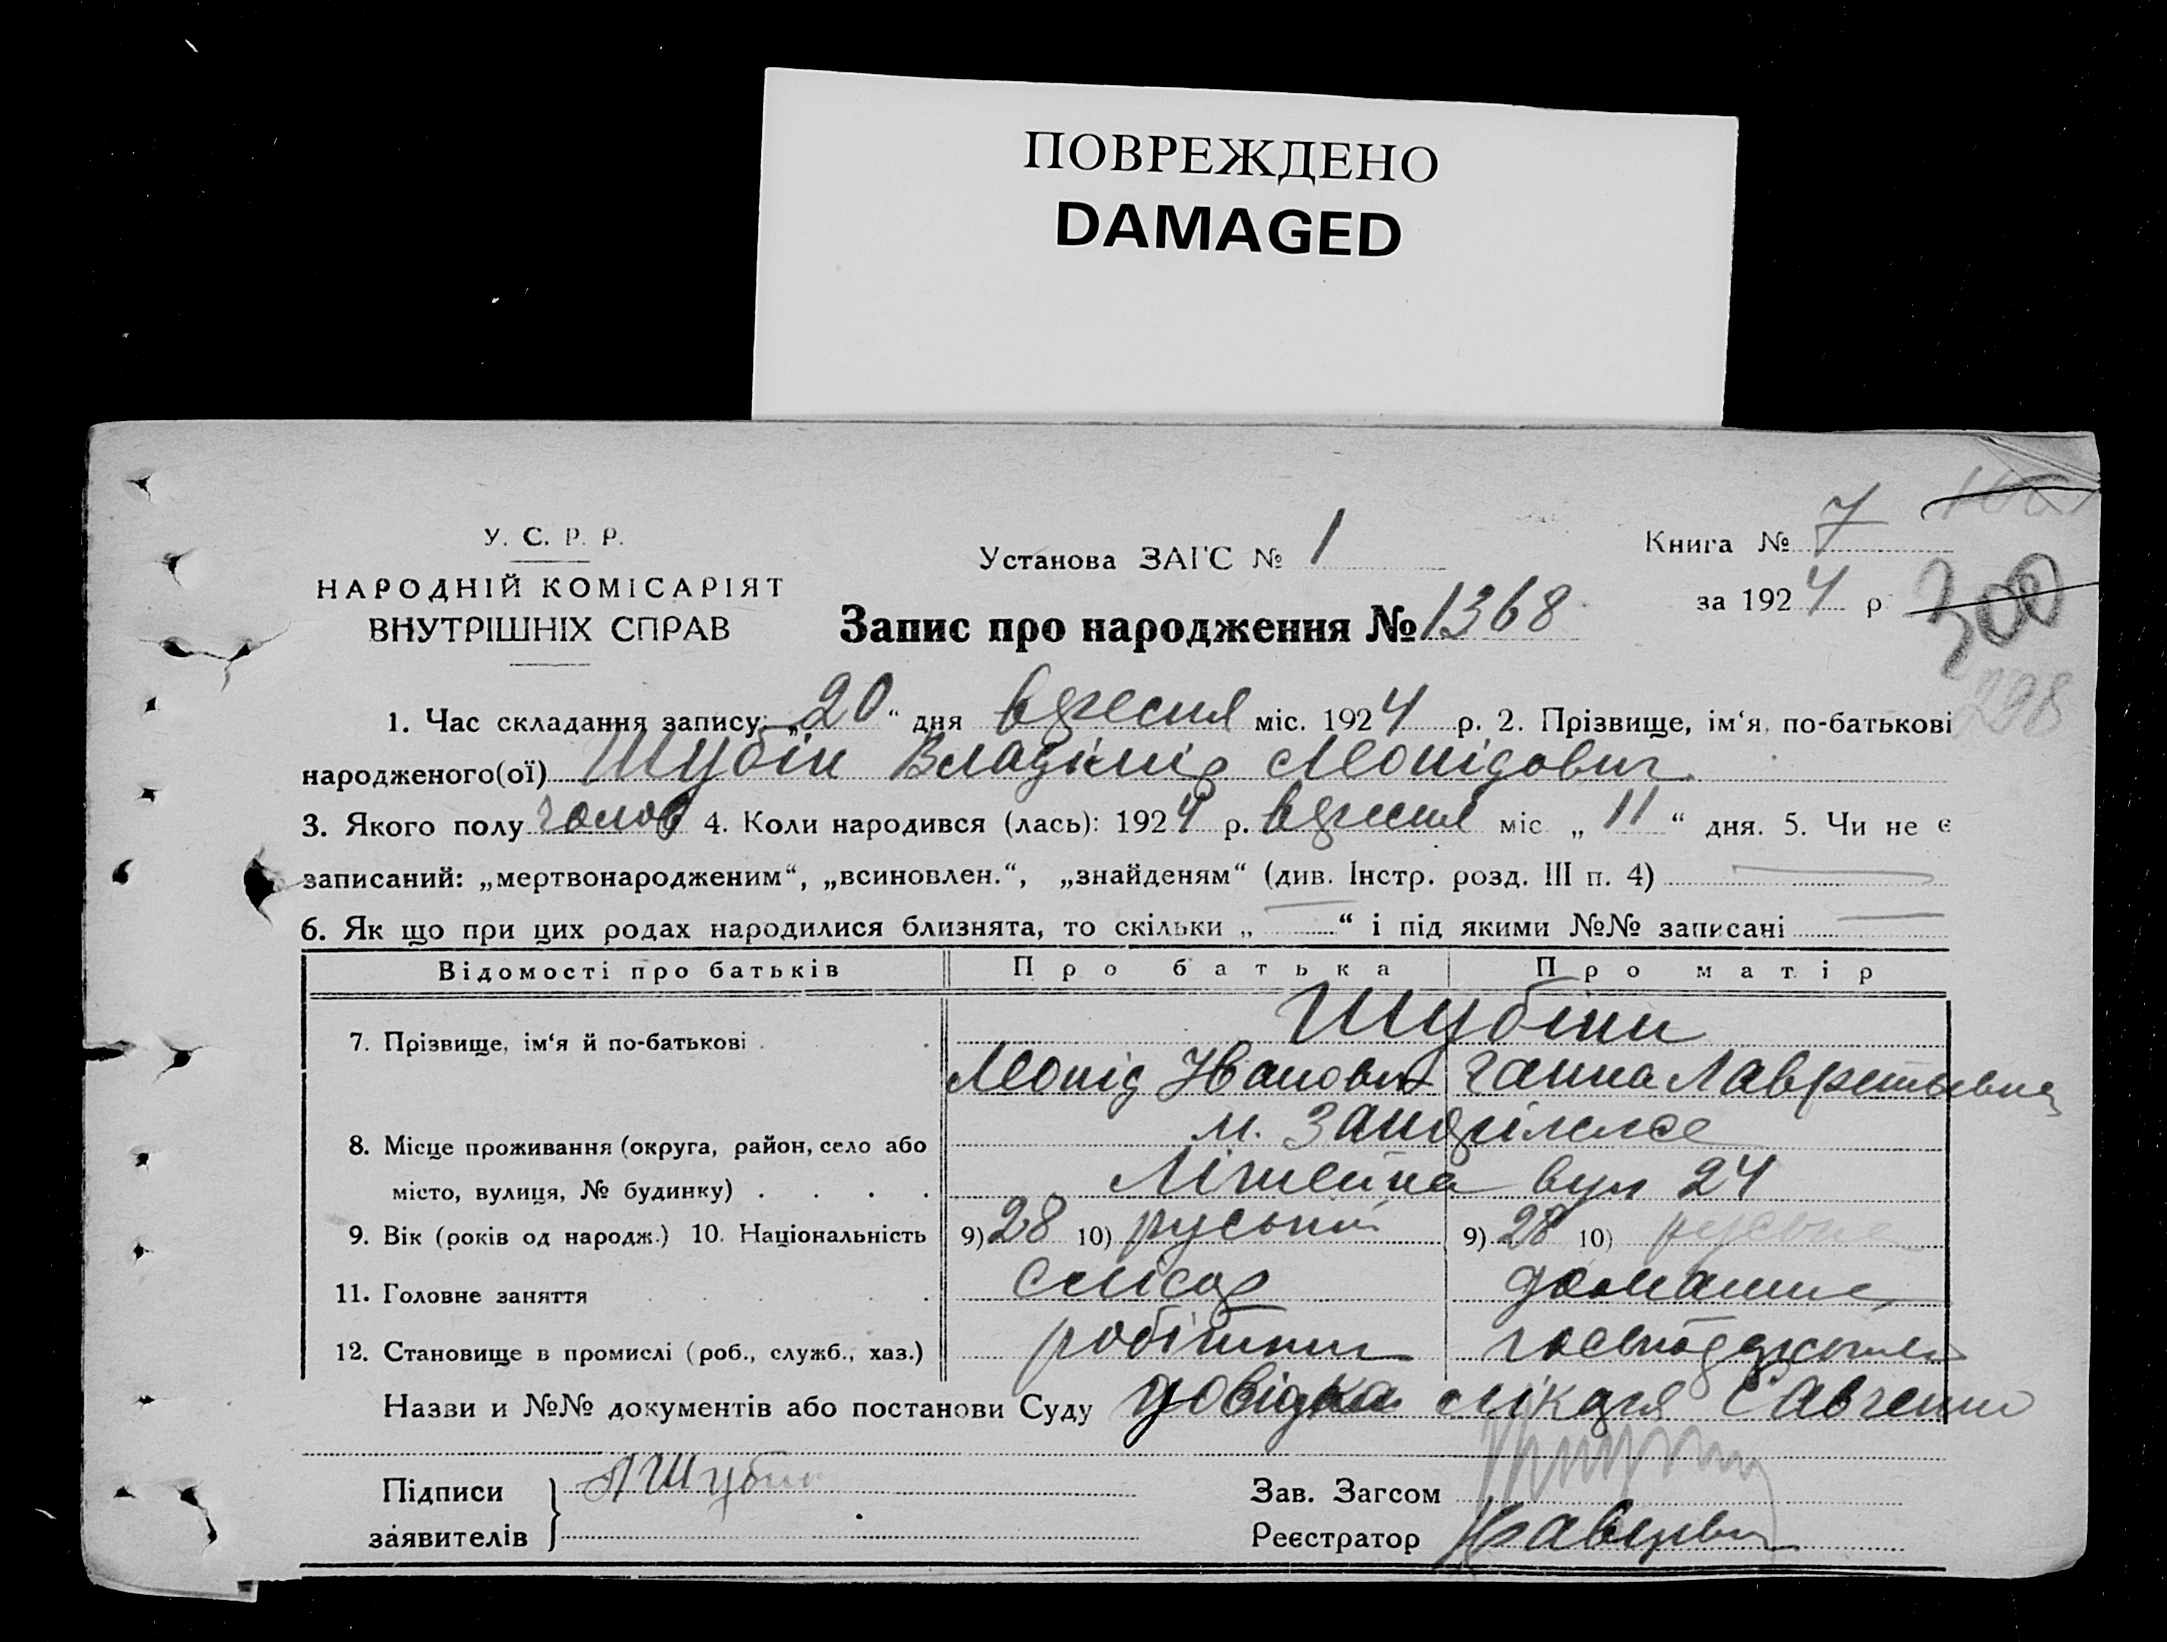 ПОВРЕЖДЕНО
DAMAGED
У. С. Р. Р.
НАРОДНІЙ КОМІСАРІЯТ
ВНУТРІШНІХ СПРАВ
Установа ЗАГС № 1
Книга № 7
за 1924 р
300
298
Запис про народження № 1368
1. Час складання запису: „20“ дня вересня міс. 1924 р. 2. Прізвище, ім‘я, по-батькові
народженого(ої) Шубін Владімір Леонідович
3. Якого полу чолов 4. Коли народився (лась): 1924 р. вересня міс „11“ дня. 5. Чи не є
записаний: „мертвонародженим“, „всиновлен.“, „знайденям“ (див. Інстр. розд. III п. 4)
6. Як що при цих родах народилися близнята, то скільки „ “ і під якими №№ записані
Відомості про батьків Про батька Про матір
7. Прізвище, ім‘я й по-батькові . . Шубіни
Леонід Іванович Ганна Лаврентьевна
8. Місце проживання (округа, район, село або м. Запоріжжє
місто, вулиця, № будинку) . . . . вул 24
9. Вік (років од народж.) 10. Національність 9) 28 10) руський 9) 28 10) руська
11. Головне заняття . . . . . слюсар домашня
12. Становище в промислі (роб., служб., хаз.) робітник
Назви и №№ документів або постанови Суду довідка лікаря Савченко
Підписи
заявителів } ЛШубин
Зав. Загсом
Реєстратор